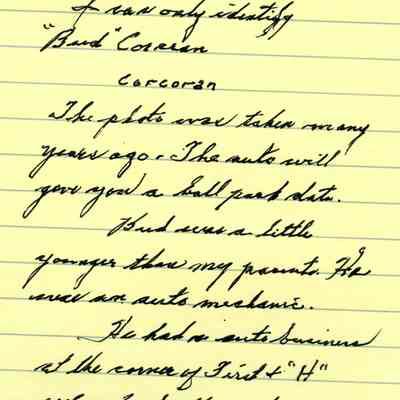 I can only identify
"Bud" Corcoran
Corcoran
The photo was taken many
years ago. The auto will
give you a ball park date.
Bud was a little
younger than my parents. He
was an auto mechanic.
He had a auto business
at the corner of First & "H"